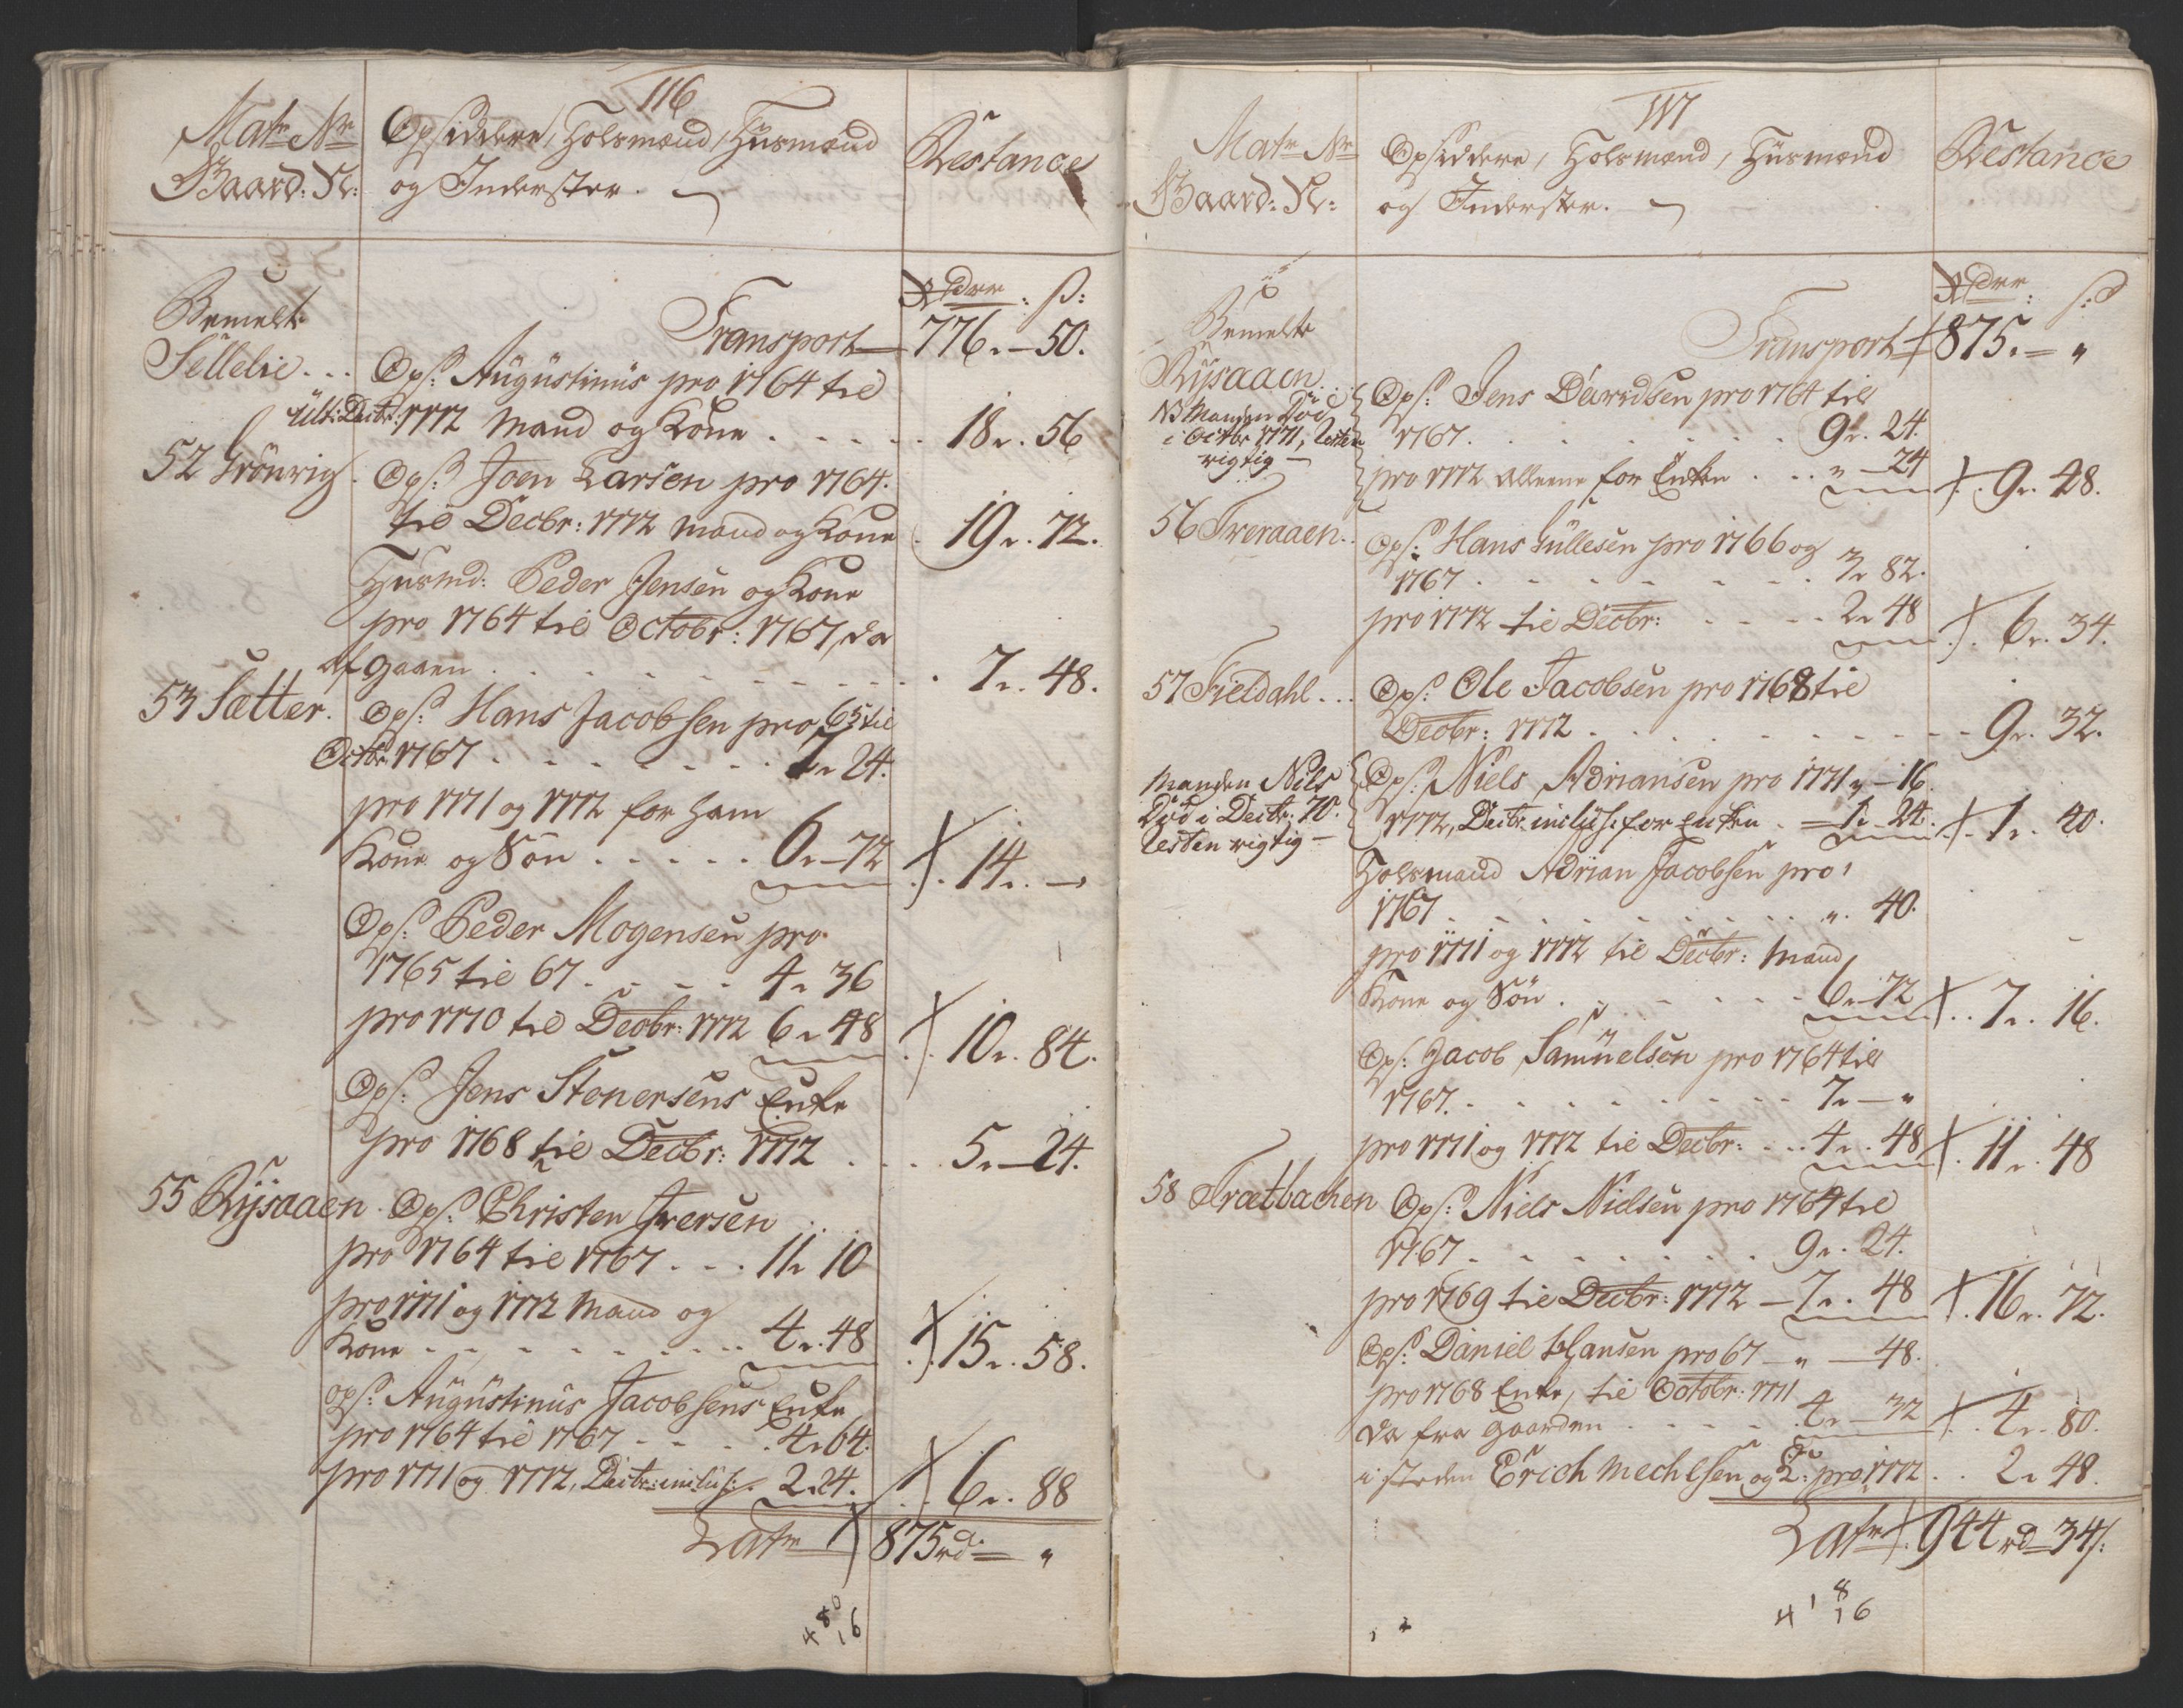 116
Matr Nr
Gaard: N:
Opsiddere, Holsmænd, Huusmænd
og Inderster.
Restance
Rdlr : s:
Transport 776 - 50.
Bemelte
Sellelie . . .
Ops: Augustinus pro 1764 til
Ult: Decbr: 1772 Mand og Kone . . . . . 18 " 56
52 Grönvig .
Ops: Joen Larsen pro 1764.
til Decbr: 1772 Mand og Kone . 19 " 72.
Huusmd: Peder Jensen og Kone
pro 1764 til Octobr: 1767, da
af Gaaen . . . . . . . . . . 7 " 48.
53 Sætter.
Ops: Hans Jacobsen pro 65 til
Octbr 1767 . . . . . . . 7 " 24.
pro 1771 og 1772 for ham
Kone og Sön . . . . . 6 " 72 14 " -
Ops: Peder Mogensen pro
1765 til 67 . . . . 4 " 36
pro 1770 til Decbr: 1772 6 " 48 10 " 84.
Ops: Jens Stenersens Enke
pro 1768 til Decbr: 1772 . . . 5 " 24.
55 Rÿsaaen .
Ops: Christen Iversen
pro 1764 til 1767 . . . 11 " 10
pro 1771 og 1772 Mand og
Kone . . . . . . . . . 4 " 48 15 " 58.
Ops: Augustinus Jacobsens Enke
pro 1764 til 1767 . . . . 4 " 64.
pro 1771 og 1772, Decbr: inclus: 2 " 24. 6 " 88
Latr 875 rd - "
8
4 16
117
Matr Nr
Gaard: N:
Opsiddere, Holsmænd, Huusmænd
og Inderster.
Restance
Rdlr : s:
Transport 875. - "
Bemelte
Rÿsaaen .
NB Manden Död
i Octbr 1771, Resten
rigtig -
Ops: Jens Davidsen pro 1764 til
1767 . . . . . . . . 9 " 24.
pro 1772 alleene for Enken . . . " - 24 9 " 48.
56 Tveraaen . .
Ops: Hans Gullesen pro 1766 og
1767 . . . . . . . 3 " 82.
pro 1772 til Decbr: . . . . 2 " 48 6 " 34.
57 Fieldahl . . .
Ops: Ole Jacobsen pro 1768 til
Decbr: 1772 . . . . . . . . . . 9 " 32.
Manden Nils
Död i Decbr: 70.
Resten rigtig -
Ops: Niels Adriansen pro 1771 " - 16.
1772, Decbr: inclus: for Enken . - 1 " 24. 1 " 40.
Holsmand Adrian Jacobsen pro
1767 . . . . . . . . . . " 40.
pro 1771 og 1772 til Decbr: Mand
Kone og Sön . . . . . . 6 " 72 7 " 16.
Ops: Jacob Samuelsen pro 1764 til
1767. . . . . . . . . . 7 " - "
pro 1771 og 1772 til Decbr: . . . 4 " 48 11 " 48
58 Trætbachen
Ops: Niels Nielsen pro 1764 til
1767 . . . . . . . . 9 " 24.
pro 1769 til Decbr: 1772 - 7 " 48 16 " 72.
Ops: Daniel Hansen pro 67 - " - 48.
pro 1768 Enke, til Octobr: 1771
da fra Gaarden . . . . . 4 " 32 4 " 80.
i steden Erich Mechelsen og 2: pro 1772 . . 2 " 48.
Latr 944 rd 34 s:
8
4 1 16